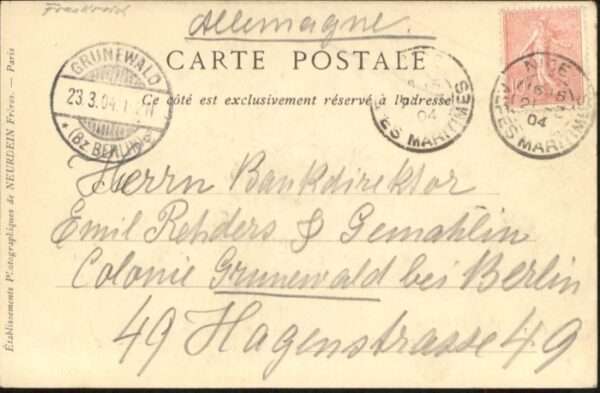 Frankreich
Allemagne.
CARTE POSTALE
Ce côté est exclusivement réservé à l'adresse
GRUNEWALD
23.3.04.
* (Bz BERLIN) *
04
ES MARITIMES
NICE
04
ES MARITIMES
Herrn Bankdirektor
Emil Rehders & Gemahlin
Colonie Grunewald bei Berlin
49 Hagenstrasse 49
Établissements Photographiques de NEURDEIN Frères. — Paris